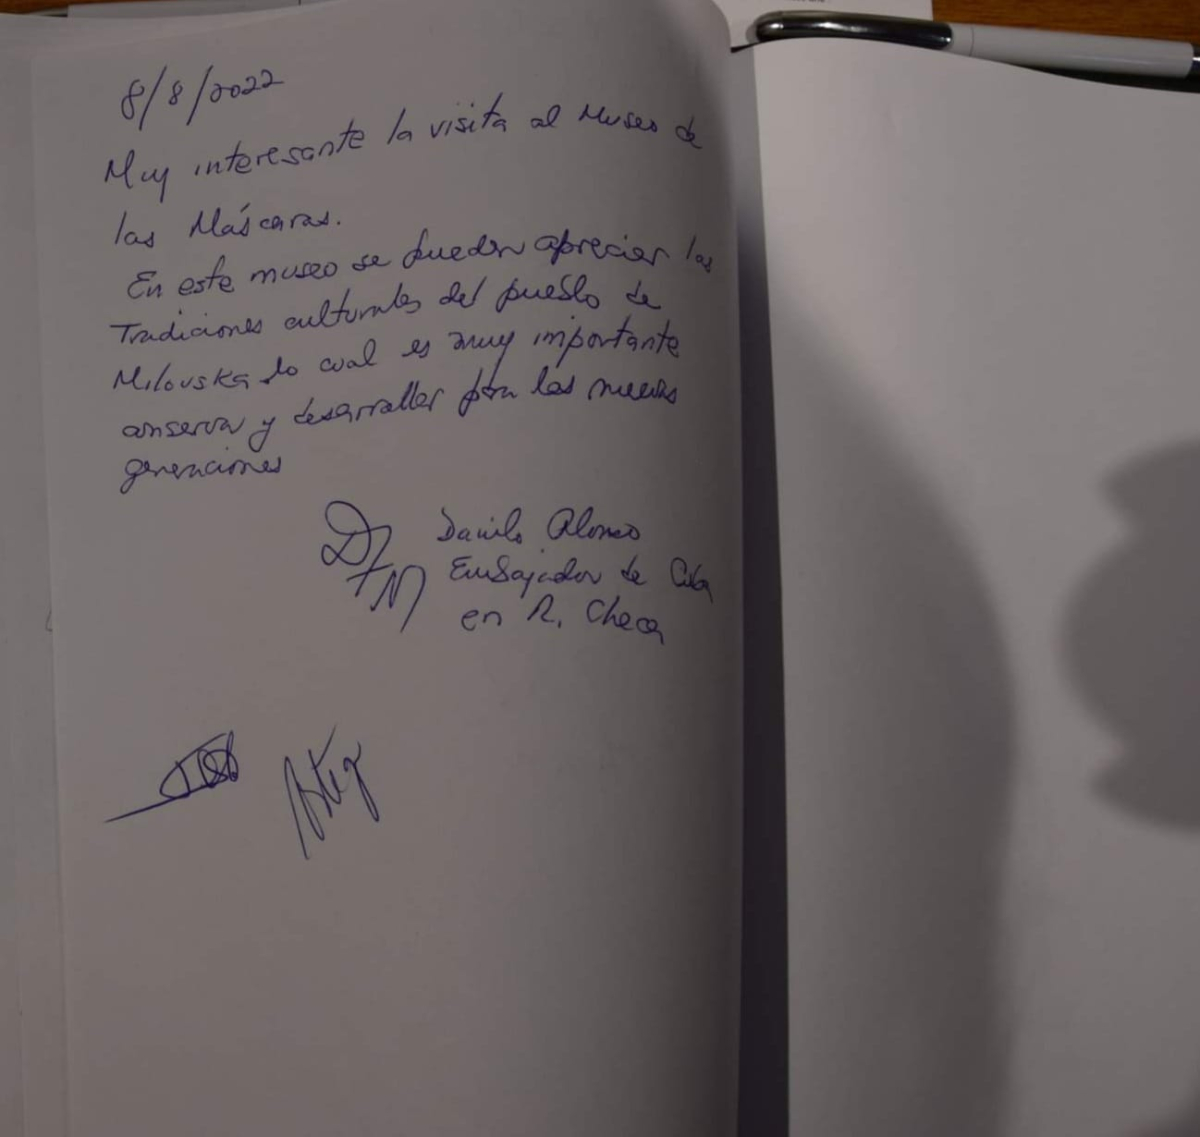 8/8/2022
Muy interesante la visita al Museo de
las Máscaras.
En este museo se pueden apreciar las
Tradiciones culturales del pueblo de
Milouska lo cual es muy importante
conservar y desarrollar para las nuevas
generaciones
Danilo Alonso
Embajador de Cuba
en R. Checa